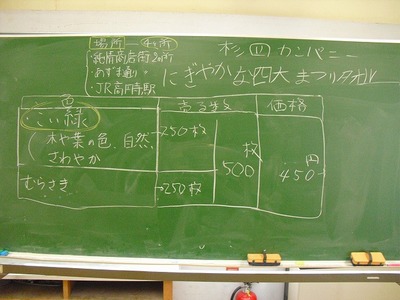 場所
・純情商店街
・あずま通り
・JR高円寺駅
杉四カンパニー
にぎやかな四大まつりタオル
色
売る数
価格
・こい緑
(木や葉の色、自然、
さわやか
→250枚
むらさき
→250枚
500枚
450円